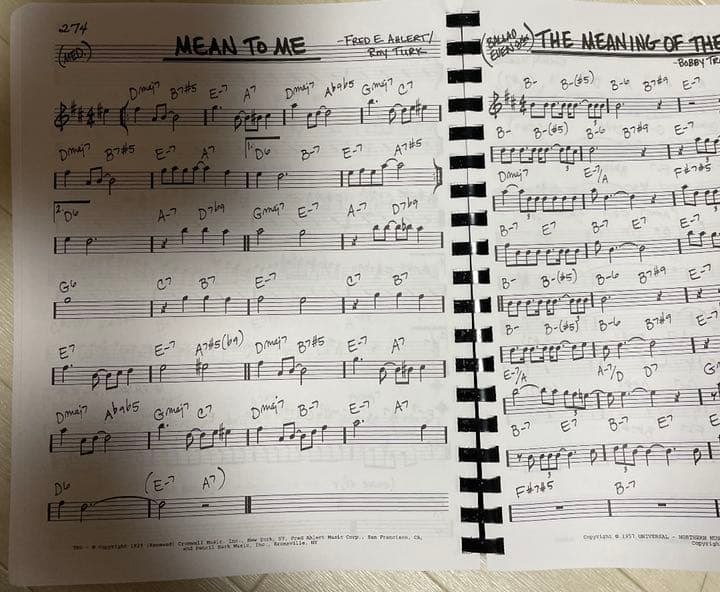 274
(MED.)
MEAN TO ME
- FRED E. AHLERT/
ROY TURK
Dmaj7 B7#5 E-7 A7 Dmaj7 Ab9b5 Gmaj7 C7
Dmaj7 B7#5 E-7 A7 1. D6 B-7 E-7 A7#5
2. D6 A-7 D7b9 Gmaj7 E-7 A-7 D7b9
G6 C7 B7 E-7 C7 B7
E7 E-7 A7#5(b9) Dmaj7 B7#5 E-7 A7
Dmaj7 Ab9b5 Gmaj7 C7 Dmaj7 B-7 E-7 A7
D6 (E-7 A7)
and Pencil Mark Music, Inc., Bronxville, NY
(BALLAD
EVEN 8ths)
THE MEANING OF THE
- BOBBY TR
B- B-(#5) B-6 B7#9 E-7
B- B-(#5) B-6 B7#9 E-7
Dmaj7 E-7/A F#7#5
B-7 E7 B-7 E7
B- B-(#5) B-6 B7#9 E-7
B- B-(#5) B-6 B7#9 E-7
E-7/A A-7/D D7
B-7 E7 B-7 E7
F#7#5 B-7
Copyright © 1957 UNIVERSAL - NORTHERN MUS
Copyrigh